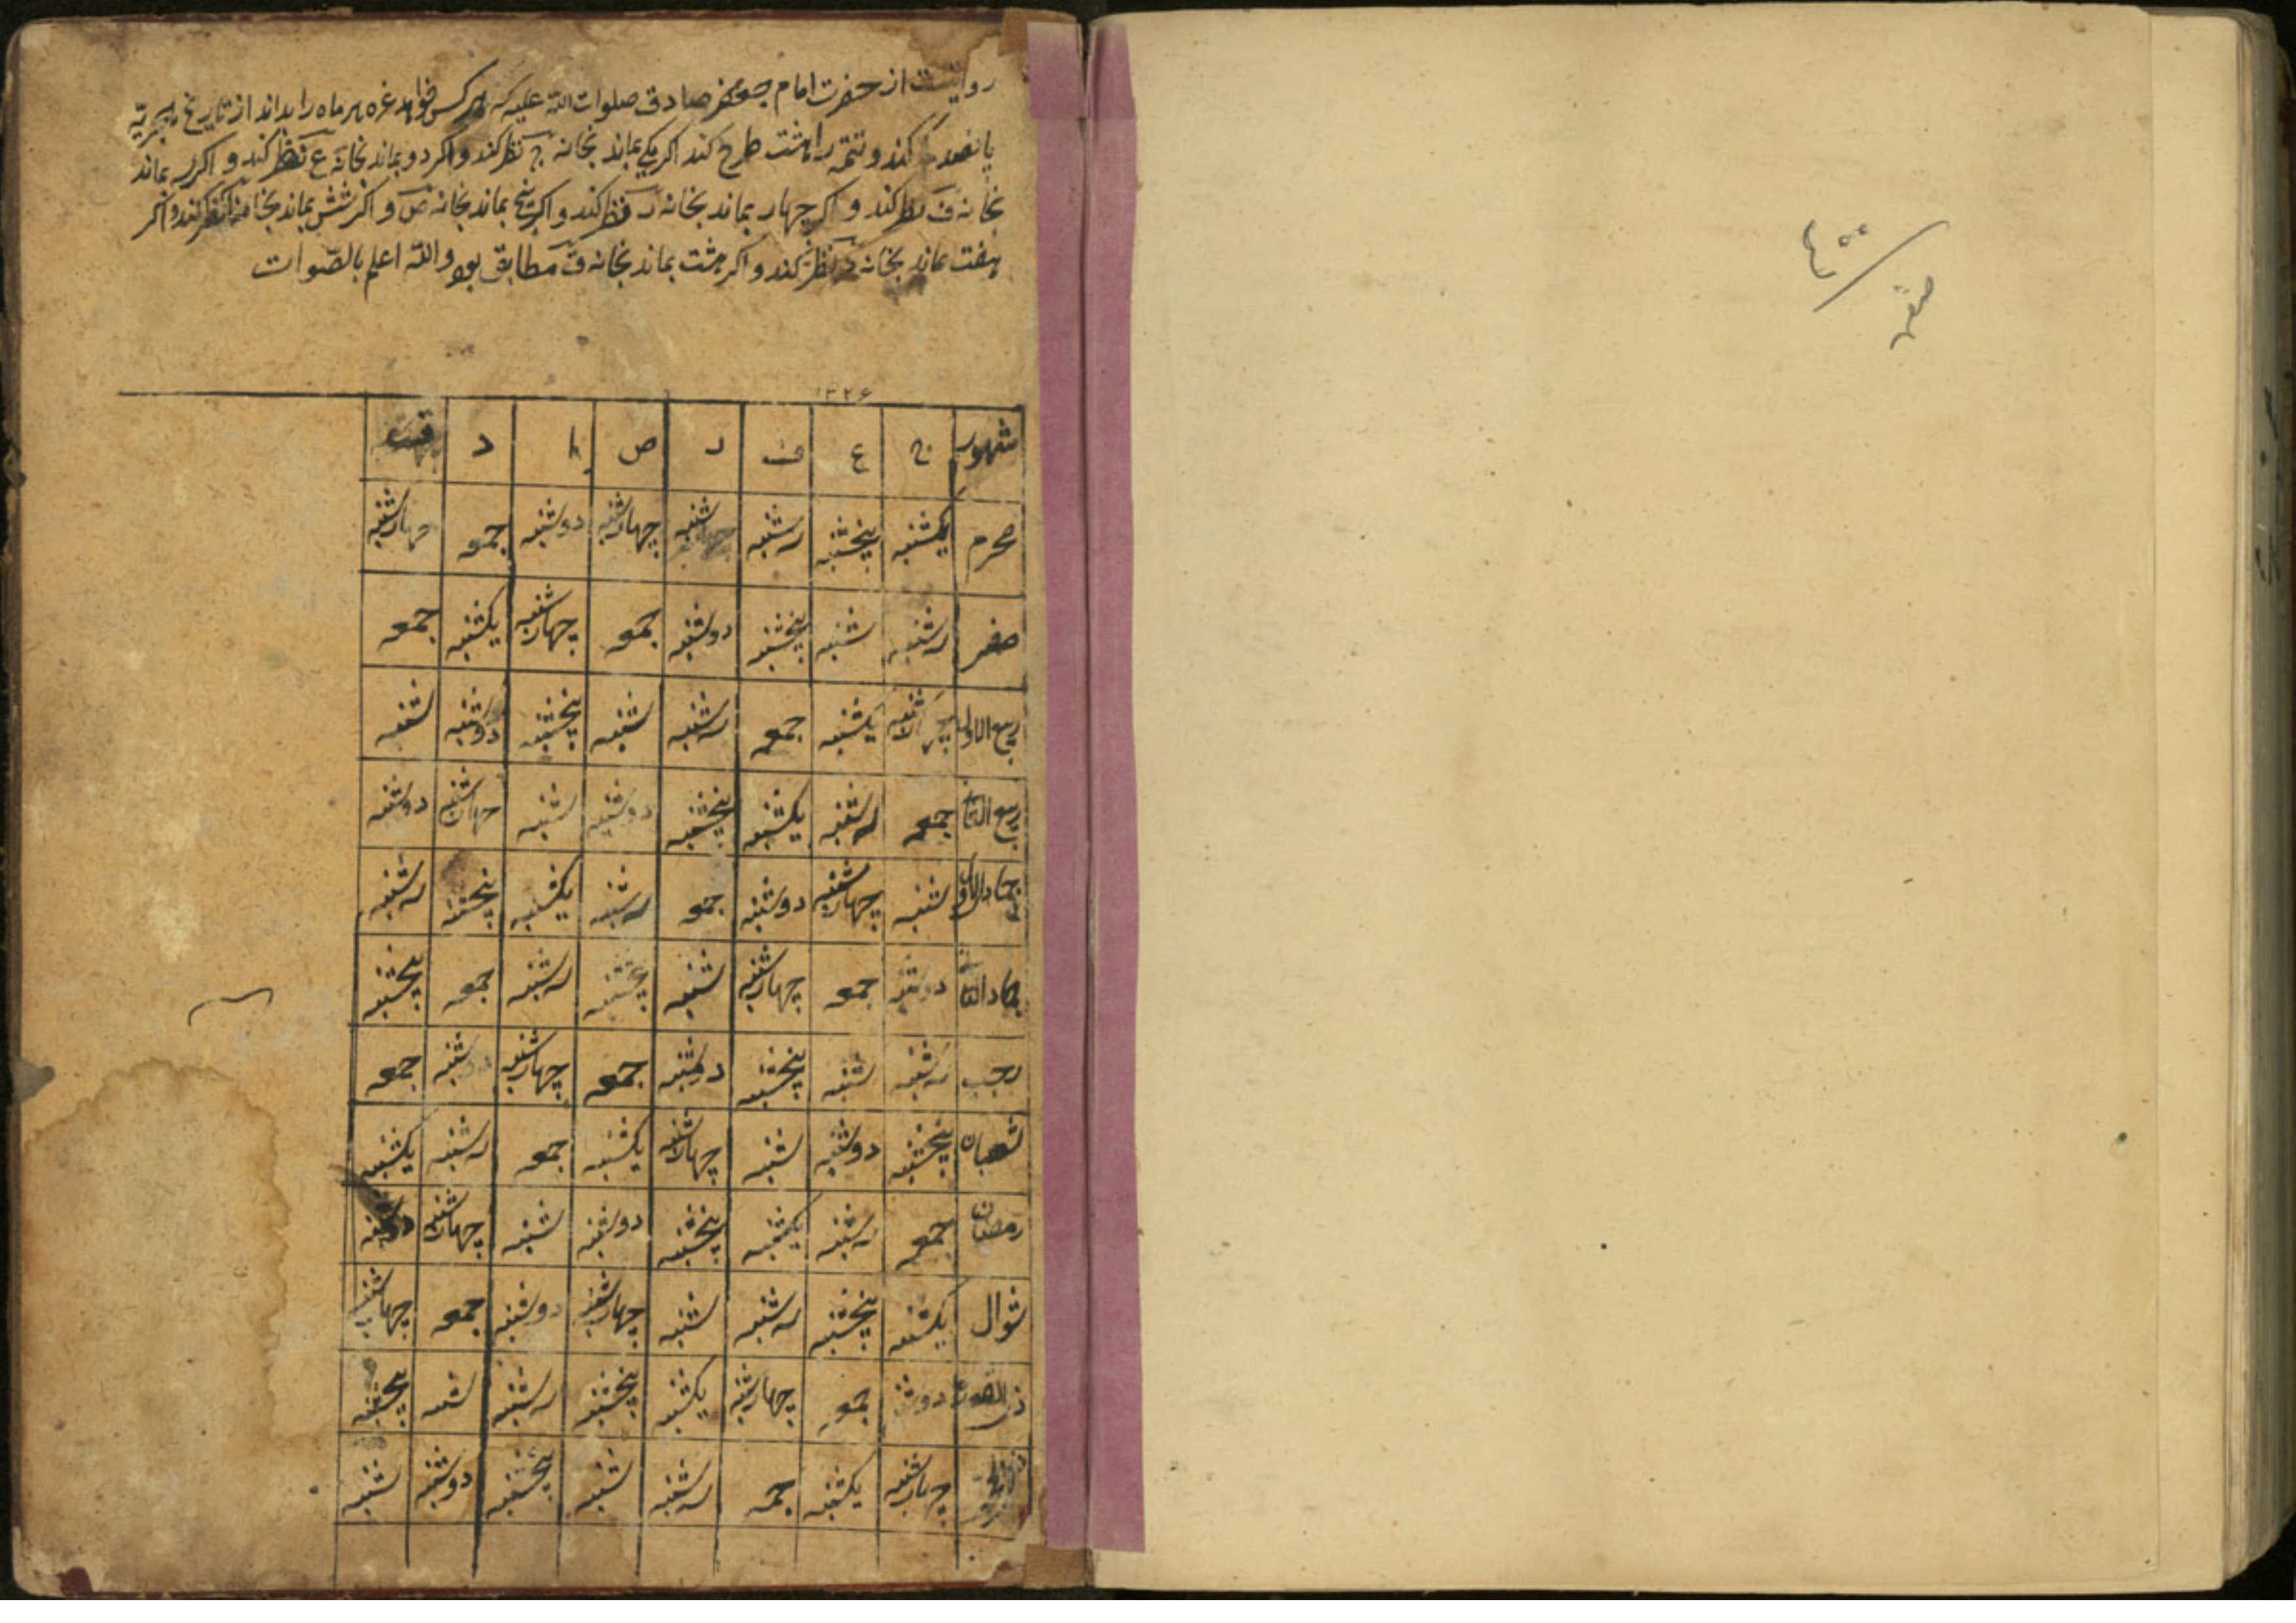 روایتست از حضرت امام جعفر صادق صلوات الله علیه که هر کس خواهد غره هر ماه را بداند از تاریخ هجریه
پانصد کند و تتمه را هشت طرح کند اکر یکی بماند بخانه ج نظر کند و اکر دو بماند بخانه ع نظر کند و اکر سه بماند
بخانه ف نظر کند و اکر چهار بماند بخانه ر نظر کند و اکر پنج بماند بخانه ص و اکر شش بماند بخانه نظر کند و اکر
هفت بماند بخانه د نظر کند و اکر هشت بماند بخانه ق مطابق بود والله اعلم بالصوات
۱۳۲۶
شهور ج ع ف ر ص د
محرم یکشنبه پنجشنبه سه شنبه چهارشنبه دوشنبه جمعه چهارشنبه
صفر سه شنبه شنبه پنجشنبه دوشنبه جمعه چهارشنبه یکشنبه جمعه
ربیع الاول چهارشنبه یکشنبه جمعه سه شنبه شنبه پنجشنبه دوشنبه شنبه
ربیع الثانی جمعه سه شنبه یکشنبه پنجشنبه دوشنبه شنبه چهارشنبه دوشنبه
جمادی الاول شنبه چهارشنبه دوشنبه جمعه سه شنبه یکشنبه پنجشنبه سه شنبه
جماد الثانی دوشنبه جمعه چهارشنبه شنبه پنجشنبه سه شنبه جمعه پنجشنبه
رجب سه شنبه شنبه پنجشنبه دوشنبه جمعه چهارشنبه جمعه
شعبان پنجشنبه دوشنبه شنبه چهارشنبه یکشنبه جمعه سه شنبه یکشنبه
رمضان جمعه سه شنبه یکشنبه پنجشنبه دوشنبه شنبه چهارشنبه دوشنبه
شوال یکشنبه پنجشنبه سه شنبه شنبه چهارشنبه دوشنبه جمعه چهارشنبه
ذی القعده دوشنبه جمعه چهارشنبه یکشنبه پنجشنبه سه شنبه شنبه پنجشنبه
چهارشنبه یکشنبه جمعه سه شنبه شنبه پنجشنبه دوشنبه شنبه